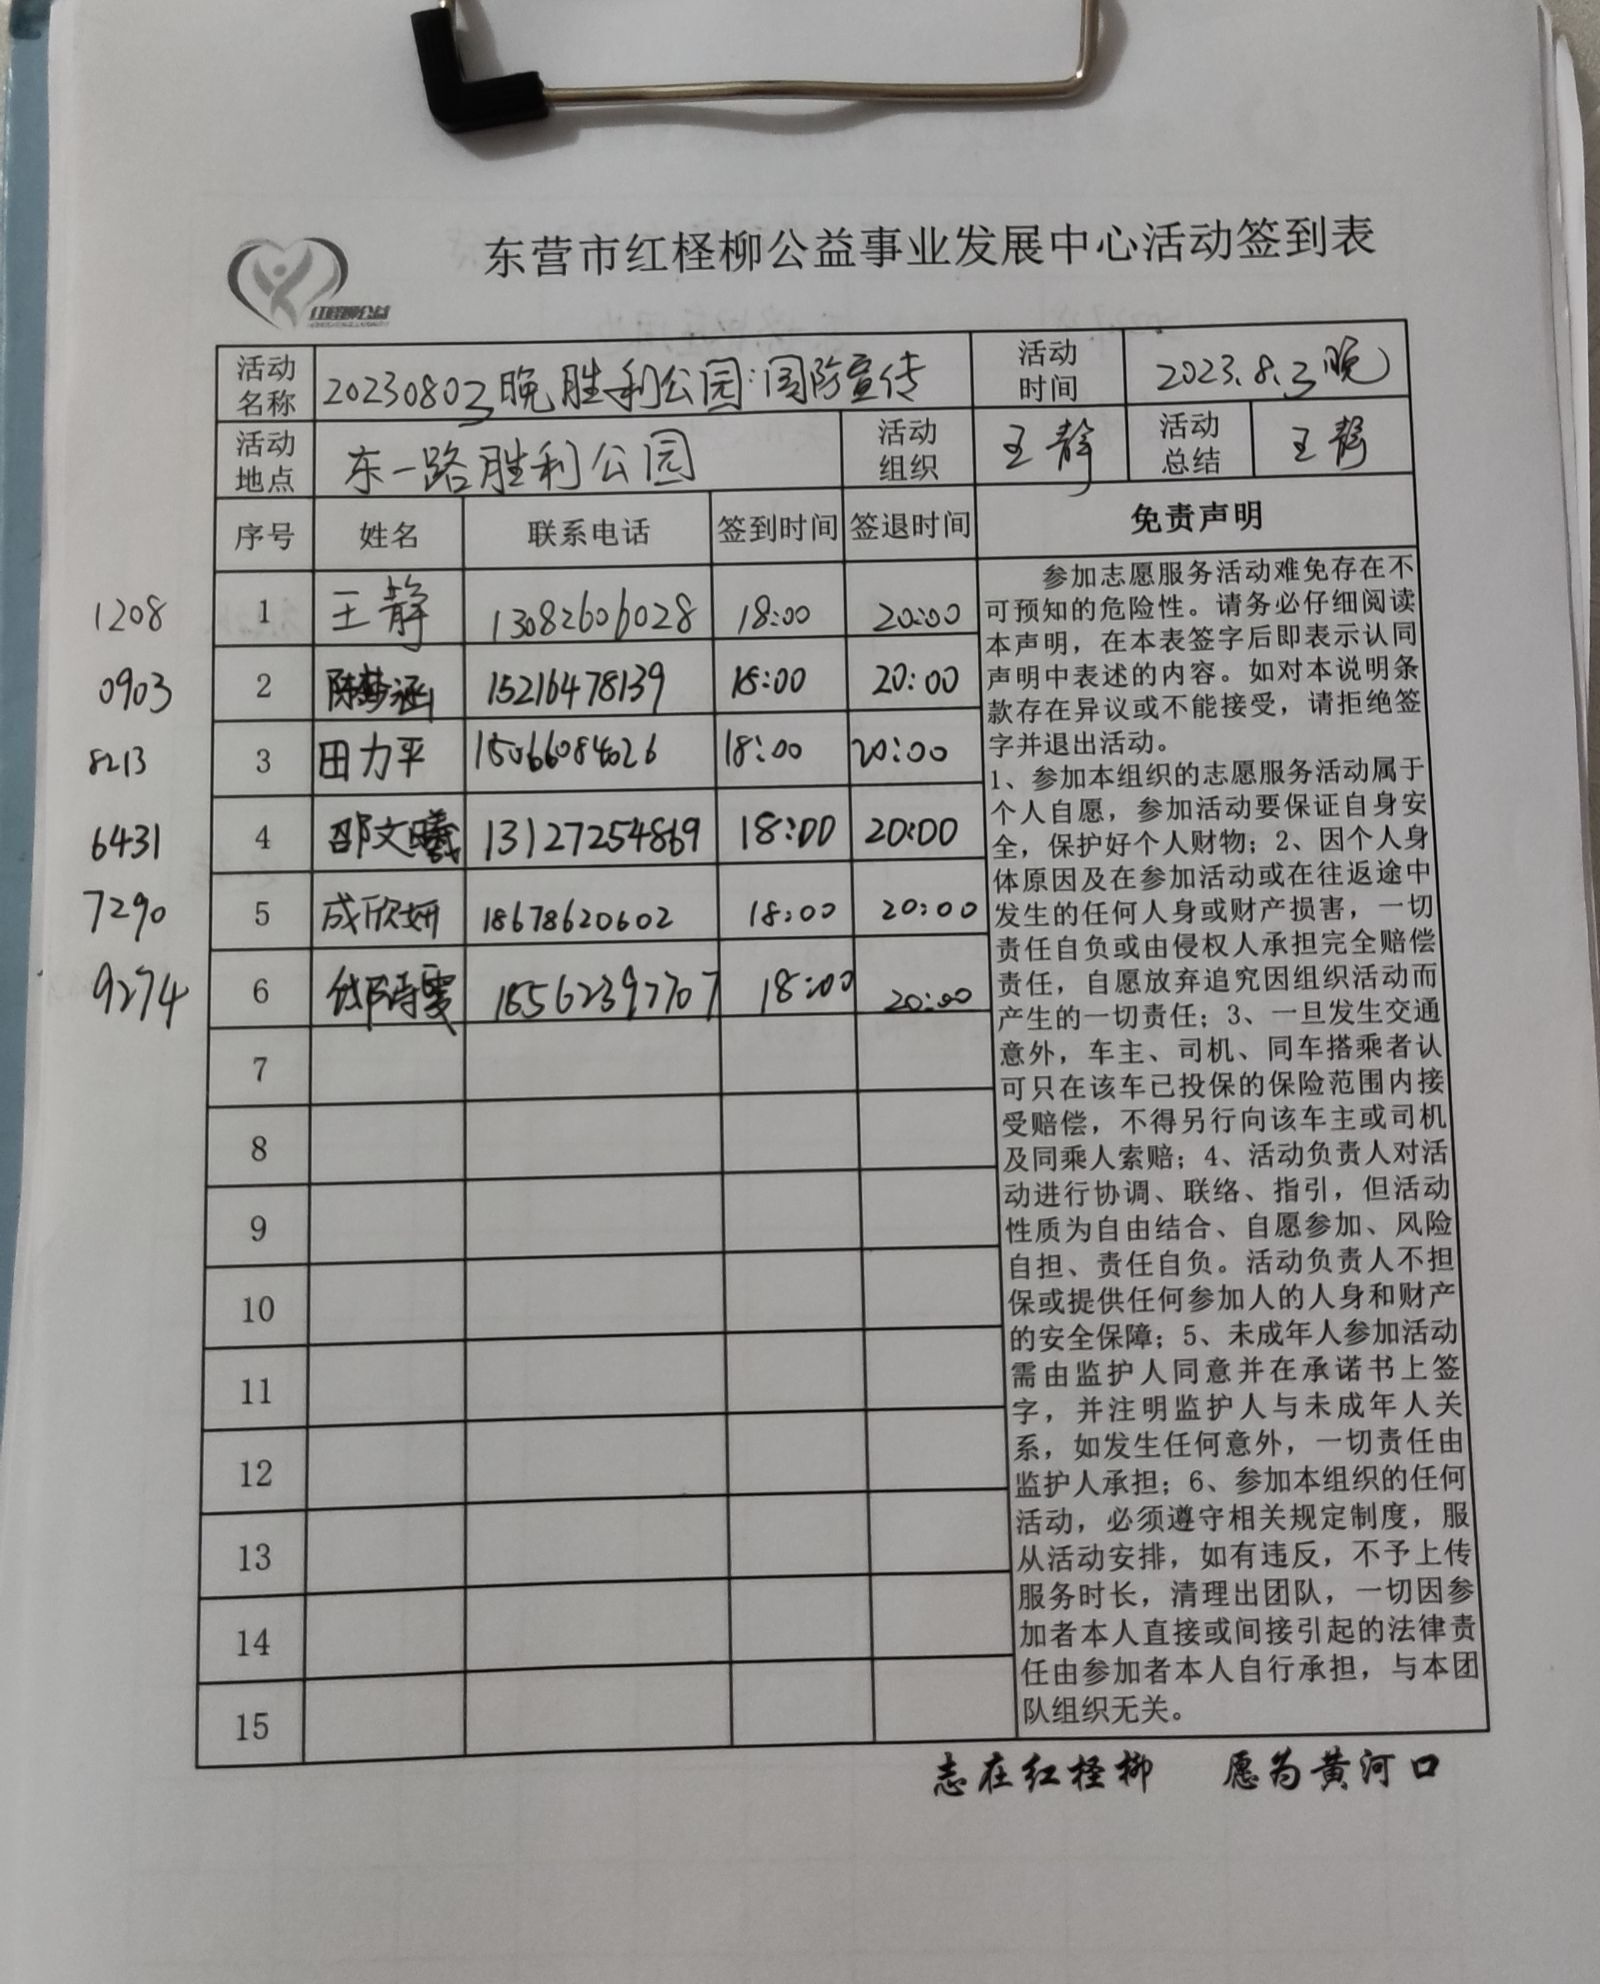 东营市红柽柳公益事业发展中心活动签到表
红柽柳公益
活动名称 20230803晚胜利公园:国防宣传 活动时间 2023.8.3晚
活动地点 东一路胜利公园 活动组织 王静 活动总结 王静
序号 姓名 联系电话 签到时间 签退时间 免责声明
1208 1 王静 13082606028 18:00 20:00
0903 2 陈梦涵 15216478139 18:00 20:00
8213 3 田力平 15066084026 18:00 20:00
6431 4 邵文曦 13127254869 18:00 20:00
7290 5 成欣妍 18678620602 18:00 20:00
9274 6 18562397707 18:00 20:00
7
8
9
10
11
12
13
14
15
参加志愿服务活动难免存在不
可预知的危险性。请务必仔细阅读
本声明，在本表签字后即表示认同
声明中表述的内容。如对本说明条
款存在异议或不能接受，请拒绝签
字并退出活动。
1、参加本组织的志愿服务活动属于
个人自愿，参加活动要保证自身安
全，保护好个人财物；2、因个人身
体原因及在参加活动或在往返途中
发生的任何人身或财产损害，一切
责任自负或由侵权人承担完全赔偿
责任，自愿放弃追究因组织活动而
产生的一切责任；3、一旦发生交通
意外，车主、司机、同车搭乘者认
可只在该车已投保的保险范围内接
受赔偿，不得另行向该车主或司机
及同乘人索赔；4、活动负责人对活
动进行协调、联络、指引，但活动
性质为自由结合、自愿参加、风险
自担、责任自负。活动负责人不担
保或提供任何参加人的人身和财产
的安全保障；5、未成年人参加活动
需由监护人同意并在承诺书上签
字，并注明监护人与未成年人关
系，如发生任何意外，一切责任由
监护人承担；6、参加本组织的任何
活动，必须遵守相关规定制度，服
从活动安排，如有违反，不予上传
服务时长，清理出团队，一切因参
加者本人直接或间接引起的法律责
任由参加者本人自行承担，与本团
队组织无关。
志在红柽柳 愿为黄河口